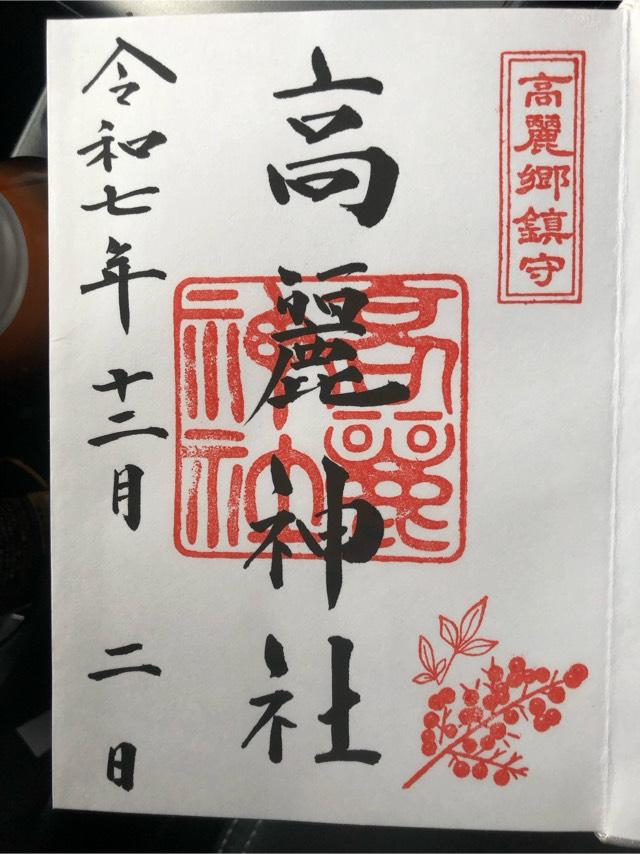 高麗郷鎮守
高麗神社
高麗神社
令和七年十二月二日